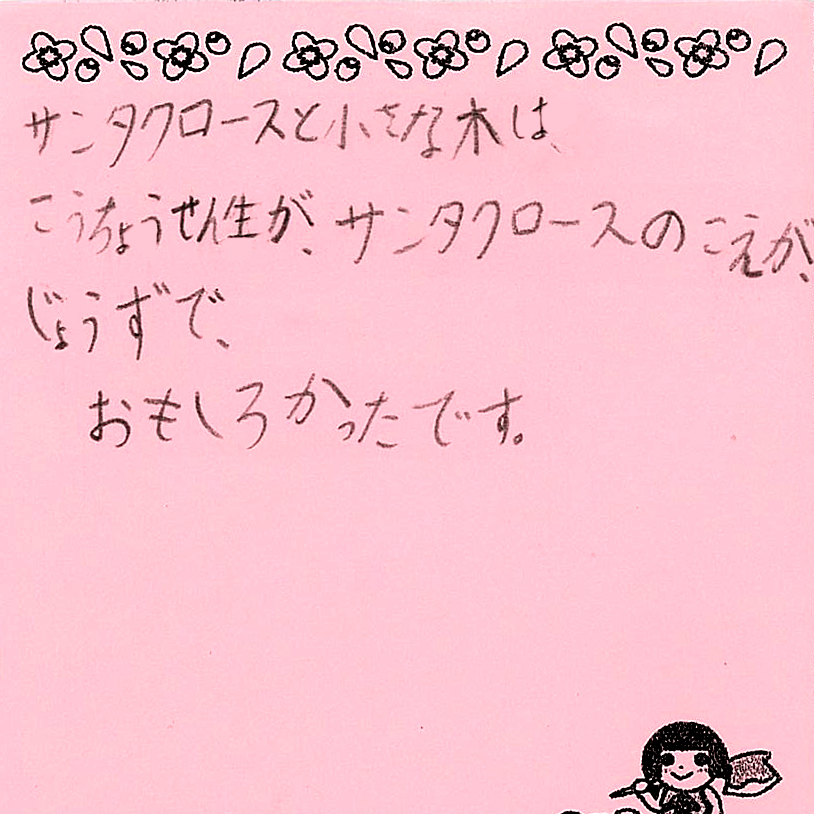 サンタクロースと小さな木は、
こうちょうせん生が、サンタクロースのこえが、
じょうずで、
おもしろかったです。